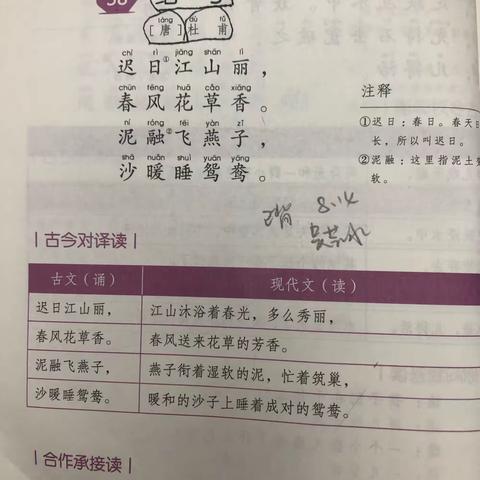 [唐] 杜甫
chí rì jiāng shān lì
迟日①江山丽，
chūn fēng huā cǎo xiāng
春风花草香。
ní róng fēi yàn zǐ
泥融②飞燕子，
shā nuǎn shuì yuān yāng
沙暖睡鸳鸯。
注释
①迟日：春日。春天日
长，所以叫迟日。
②泥融：这里指泥土
软。
已背 8.14
|古今对译读|
古文（诵） 现代文（读）
迟日江山丽， 江山沐浴着春光，多么秀丽，
春风花草香。 春风送来花草的芳香。
泥融飞燕子， 燕子衔着湿软的泥，忙着筑巢，
沙暖睡鸳鸯。 暖和的沙子上睡着成对的鸳鸯。
|合作承接读|